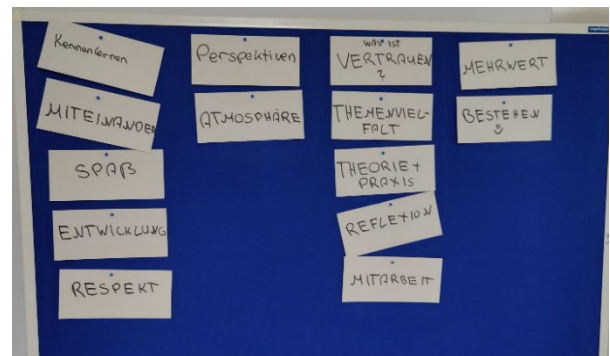 Kennenlernen
MITEINANDER
SPAß
ENTWICKLUNG
RESPEKT
Perspektiven
ATMOSPHÄRE
WAS IST
VERTRAUEN
?
THEMENVIEL-
FALT
THEORIE +
PRAXIS
REFLEXION
MITARBEIT
MEHRWERT
BESTEHEN